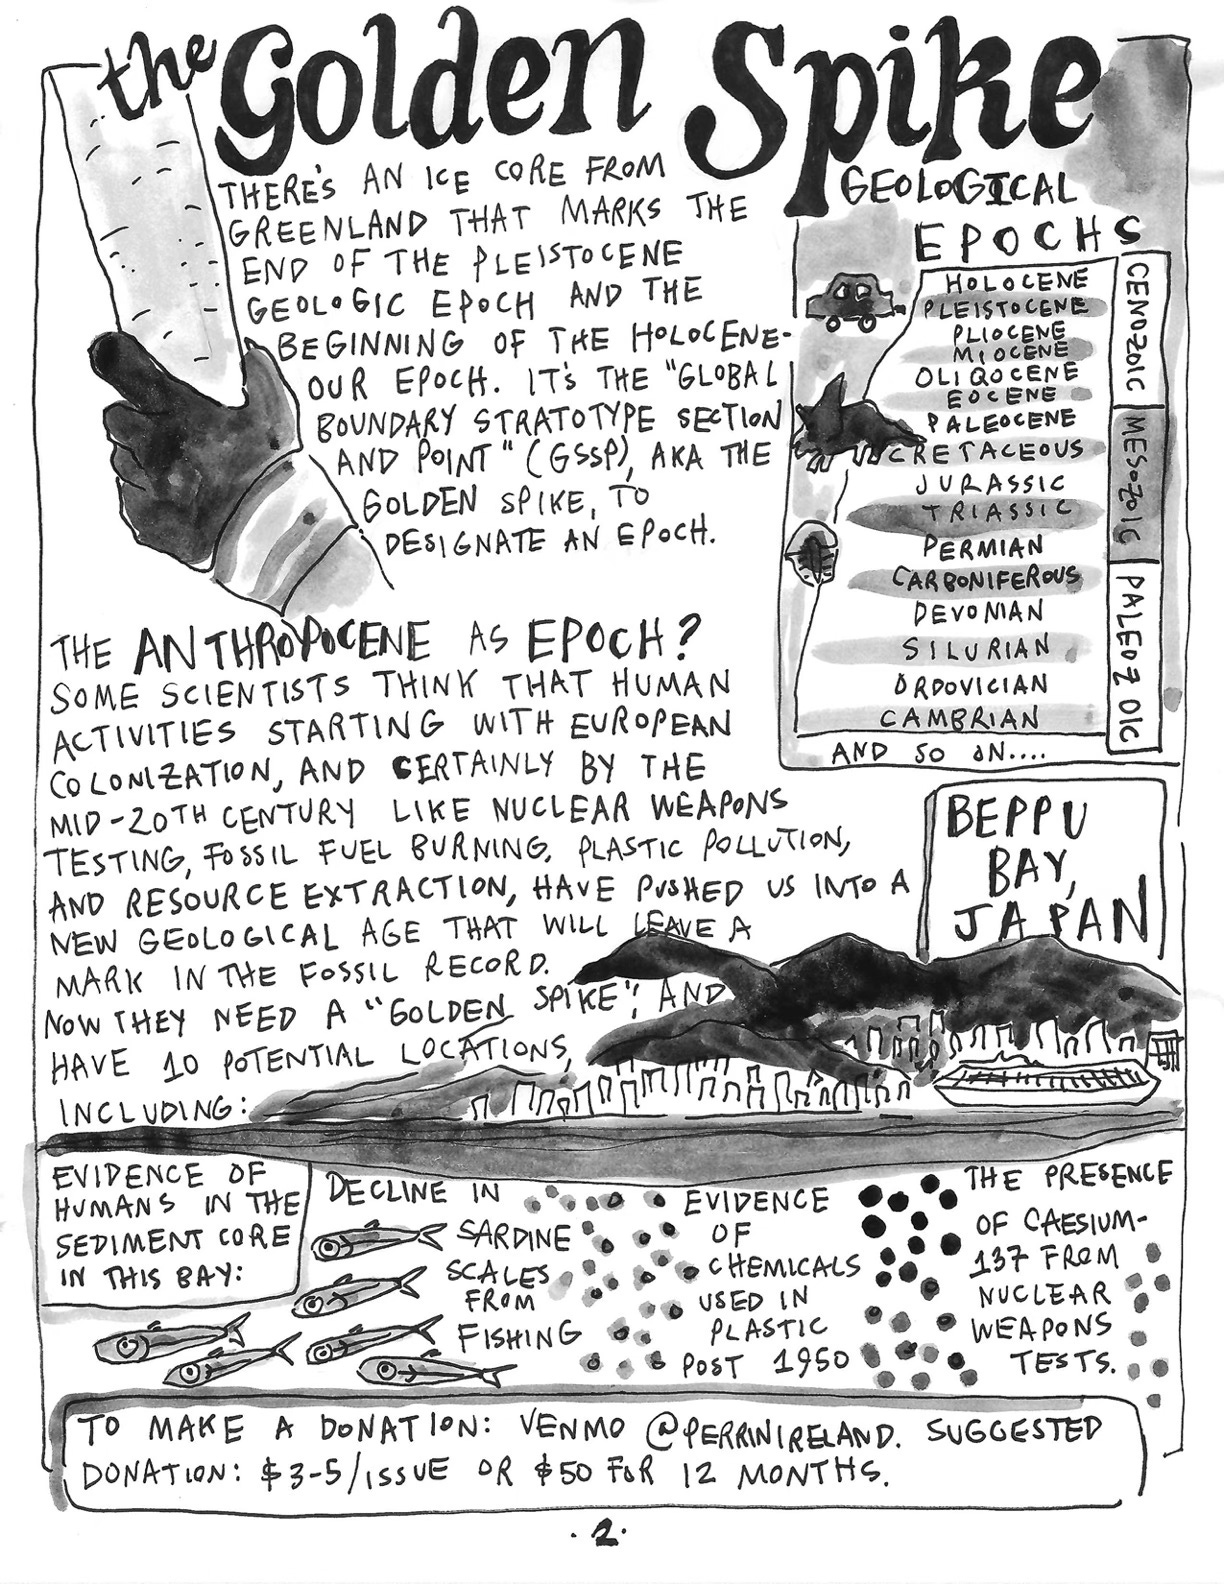 the Golden Spike
THERE'S AN ICE CORE FROM
GREENLAND THAT MARKS THE
END OF THE PLEISTOCENE
GEOLOGIC EPOCH AND THE
BEGINNING OF THE HOLOCENE-
OUR EPOCH. IT'S THE "GLOBAL
BOUNDARY STRATOTYPE SECTION
AND POINT" (GSSP), AKA THE
GOLDEN SPIKE, TO
DESIGNATE AN EPOCH.
GEOLOGICAL
EPOCHS
HOLOCENE
PLEISTOCENE
PLIOCENE
MIOCENE
OLIGOCENE
EOCENE
PALEOCENE
CRETACEOUS
JURASSIC
TRIASSIC
PERMIAN
CARBONIFEROUS
DEVONIAN
SILURIAN
ORDOVICIAN
CAMBRIAN
AND SO ON....
CENOZOIC
MESOZOIC
PALEOZOIC
THE ANTHROPOCENE AS EPOCH?
SOME SCIENTISTS THINK THAT HUMAN
ACTIVITIES STARTING WITH EUROPEAN
COLONIZATION, AND CERTAINLY BY THE
MID-20TH CENTURY LIKE NUCLEAR WEAPONS
TESTING, FOSSIL FUEL BURNING, PLASTIC POLLUTION,
AND RESOURCE EXTRACTION, HAVE PUSHED US INTO A
NEW GEOLOGICAL AGE THAT WILL LEAVE A
MARK IN THE FOSSIL RECORD.
NOW THEY NEED A "GOLDEN SPIKE", AND
HAVE 10 POTENTIAL LOCATIONS,
INCLUDING:
BEPPU
BAY,
JAPAN
EVIDENCE OF
HUMANS IN THE
SEDIMENT CORE
IN THIS BAY:
DECLINE IN
SARDINE
SCALES
FROM
FISHING
EVIDENCE
OF
CHEMICALS
USED IN
PLASTIC
POST 1950
THE PRESENCE
OF CAESIUM-
137 FROM
NUCLEAR
WEAPONS
TESTS.
TO MAKE A DONATION: VENMO @PERRINIRELAND. SUGGESTED
DONATION: $3-5/ISSUE OR $50 FOR 12 MONTHS.
·2·